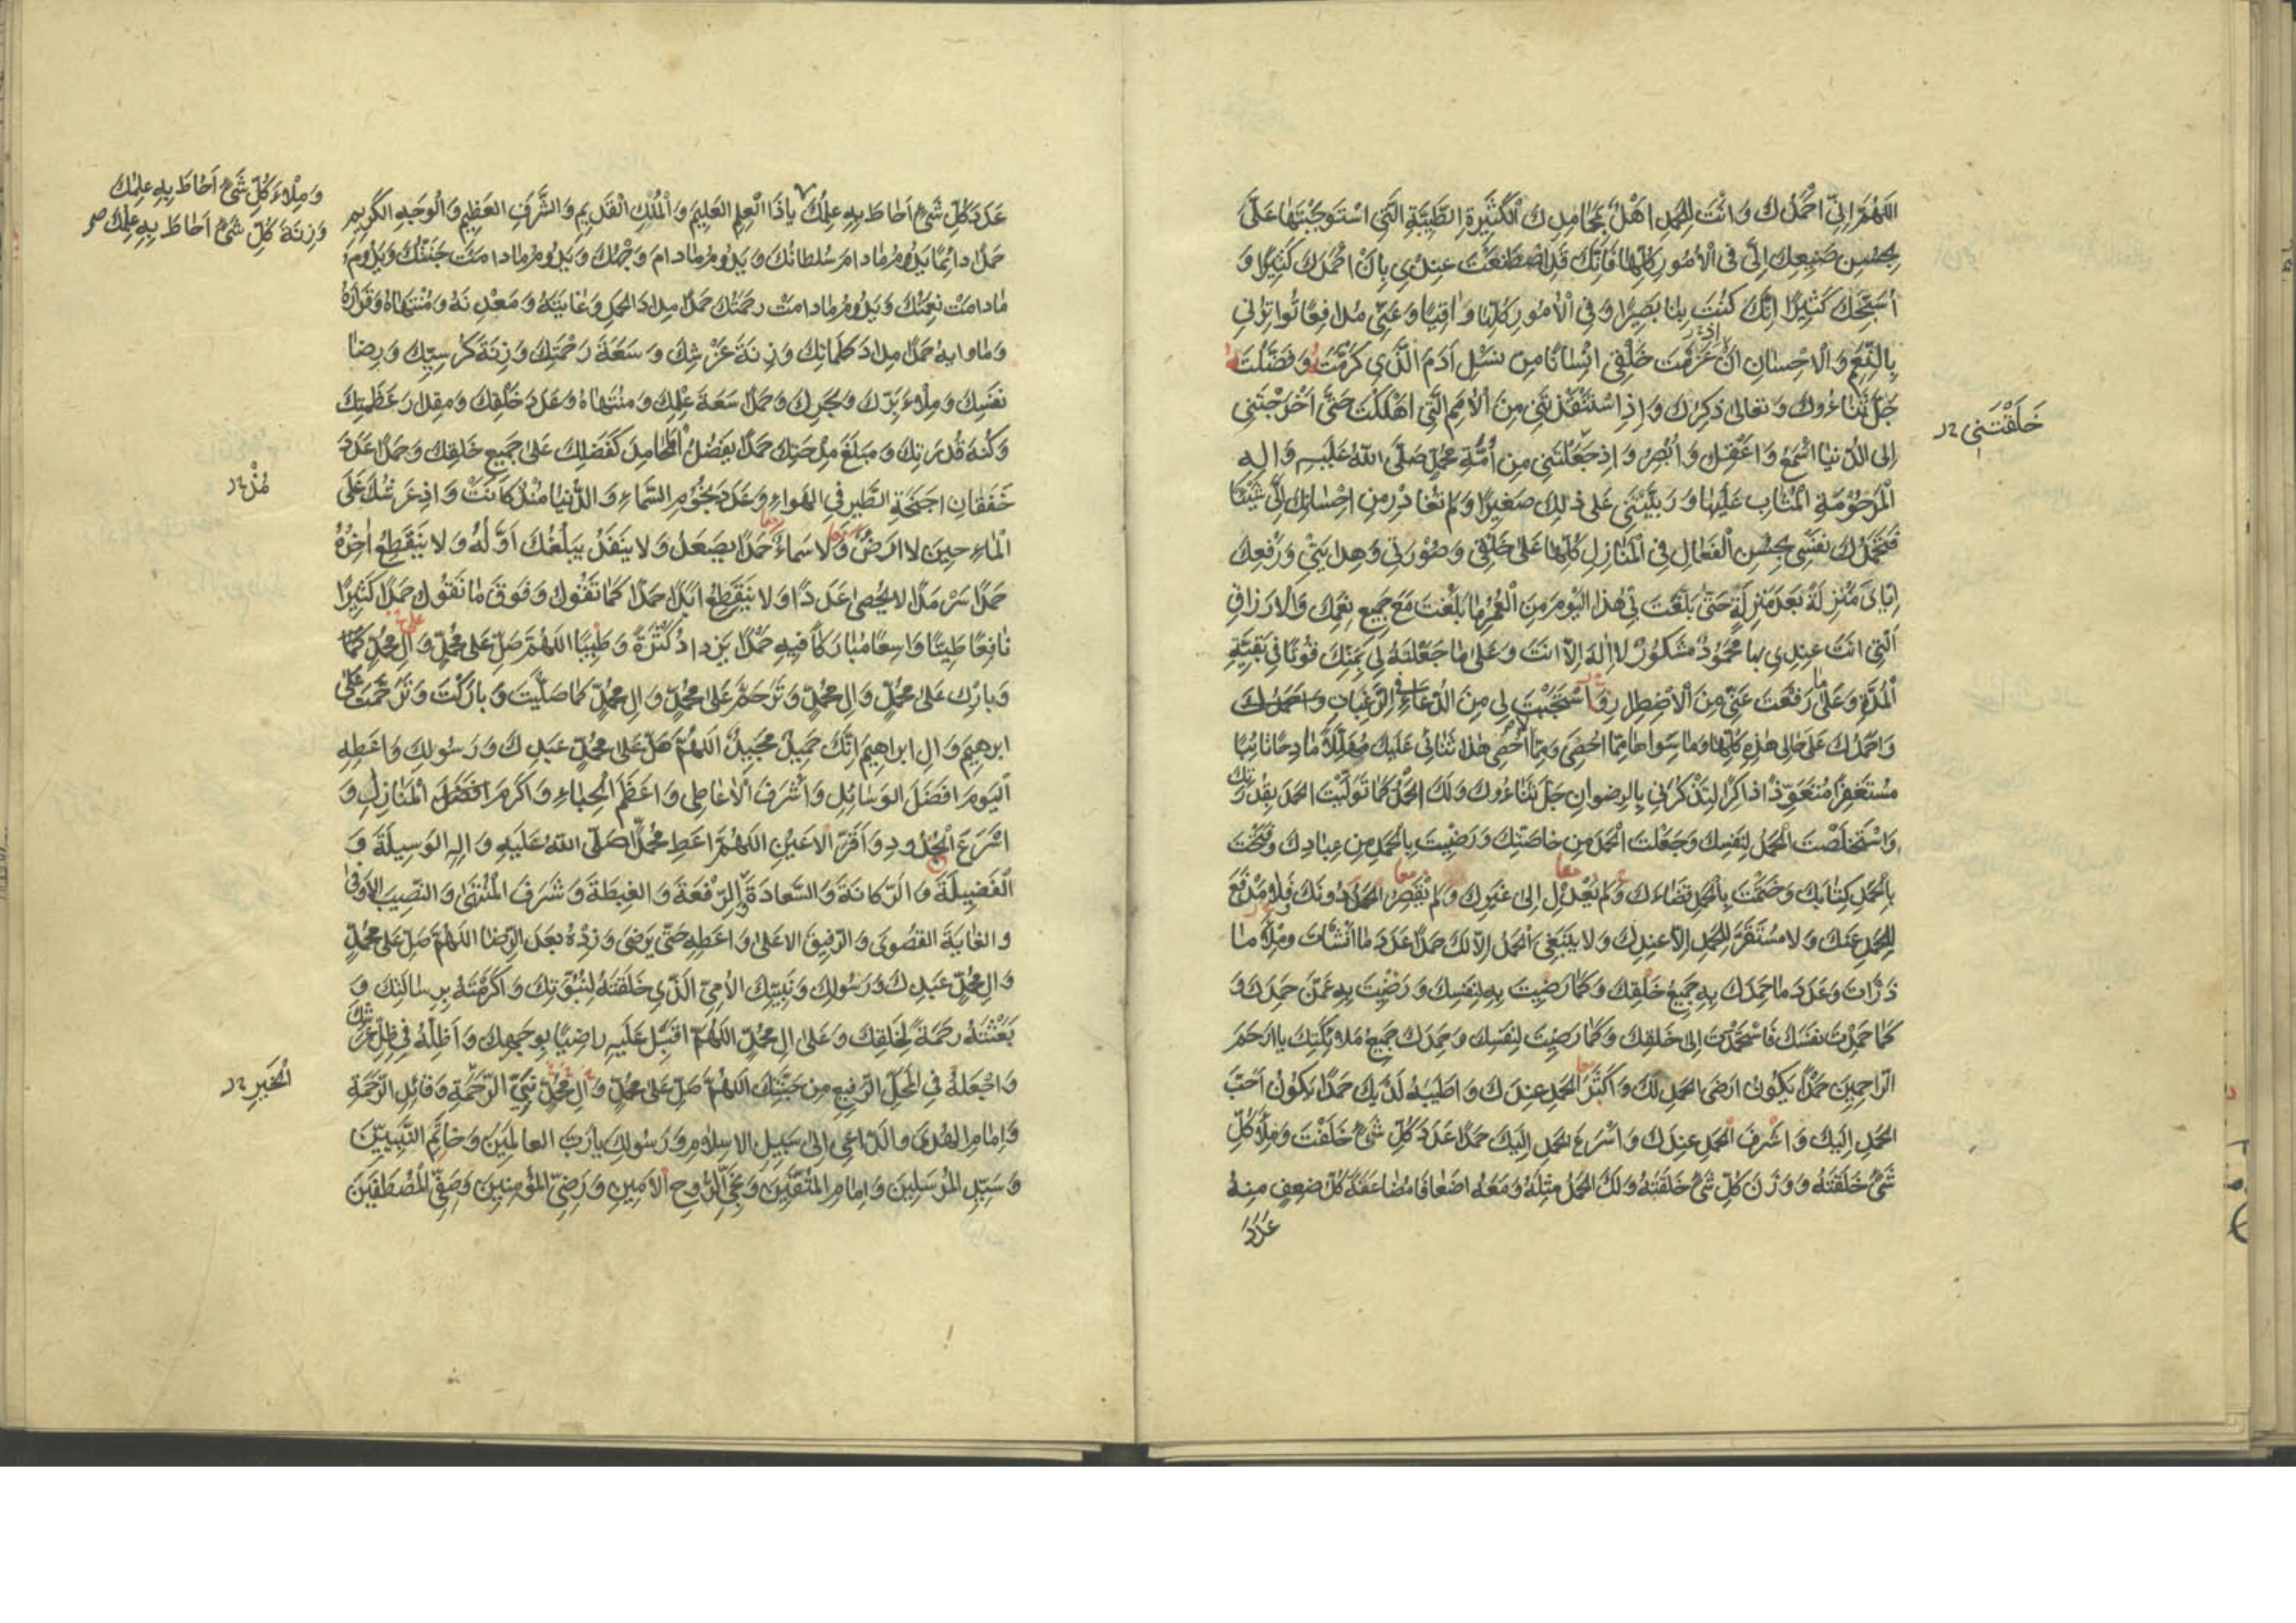 اللهم اني احمدك وانت للحمد اهل بمحامدك الكثيرة الطيبة التي استوجبتها علي
بحسن صنيعك الي في الامور كلها فانك قد اصطنعت عندي بان احمدك كثيرا و
اسبحك كثيرا انك كنت بنا بصيرا وفي الامور كلها واقيا وعني مدافعا تواترني
بالنعم والاحسان اذ عزمت خلقي انسانا من نسل ادم الذي كرمت وفضلت
جل ثناءوك وتعالى ذكرك واذ استنقذتني من الامم التي اهلكت حتى اخرجتني
الى الدنيا اسمع واعقل وابصر واذ جعلتني من امة محمد صلى الله عليه واله
المرحومة المثاب عليها وربيتني على ذلك صغيرا ولم تغادر من احسانك الي شيئا
فتحمدك نفسي بحسن الفعال في المنازل كلها على خلقي وصورتي وهدايتي ورفعك
اياي منزلة بعد منزلة حتى بلغت بي هذا اليوم من العمر ما بلغت مع جميع نعمك والارزاق
التي انت عندي بها محمود مشكور لا اله الا انت وعلى ما جعلته لي بمنك قوتا في بقية
المدة وعلى ما رفعت عني من الاضطرار واستجبت لي من الدعاء في الرغبات واحمدك
واحمدك على حالي هذه كلها وما سواها مما احصي ومما لا احصي هذا ثنائي عليك مهللا مادحا تائبا
مستغفرا متعوذا ذاكرا لتذكرني بالرضوان جل ثناءوك ولك الحمد كما توليت الحمد بقدرتك
واستخلصت الحمد لنفسك وجعلت الحمد من خاصتك ورضيت بالحمد من عبادك وفتحت
بالحمد كتابك وختمت بالحمد قضاءك ولم يعدل الى غيرك ولم يقصر الحمد دونك فلا مدفع
للحمد عنك ولا مستقر للحمد الا عندك ولا ينبغي الحمد الا لك حمدا عدد ما انشات وملأ ما
ذرات وعدد ما حمدك به جميع خلقك وكما رضيت به لنفسك ورضيت به عمن حمدك و
كما حمدت نفسك فاستحمدت الى خلقك وكما رضيت لنفسك وحمدك جميع ملائكتك يا ارحم
الراحمين حمدا يكون ارضى الحمد لك واكثر الحمد عندك واطيبه لديك حمدا يكون احب
الحمد اليك واشرف الحمد عندك واسرع الحمد اليك حمدا عدد كل شيء خلقت وملأ كل
شيء خلقته ووزن كل شيء خلقته ولك الحمد مثله ومعه اضعافا مضاعفة كل ضعف منه
عدد
خلقتني
عدد كل شيء احاط به علمك يا ذا العلم العليم والملك القديم والشرف العظيم والوجه الكريم
حمدا دائما يدوم ما دام سلطانك ويدوم ما دام وجهك ويدوم ما دامت جنتك ويدوم
ما دامت نعمتك ويدوم ما دامت رحمتك حمدا مداد الحمد وغايته ومعدنه ومنتهاه وقراره
وماواه حمدا مداد كلماتك وزنة عرشك وسعة رحمتك وزنة كرسيك ورضا
نفسك وملاء برك وبحرك وحمدا سعة علمك ومنتهاه وعدد خلقك ومقدار عظمتك
وكنه قدرتك ومبلغ مدحتك حمدا يفضل المحامد كفضلك على جميع خلقك وحمدا عدد
خفقان اجنحة الطير في الهواء وعدد نجوم السماء والدنيا منذ كانت واذ عرشك على
الماء حين لا ارض ولا سماء حمدا يصعد ولا ينفد يبلغك اوله ولا ينقطع اخره
حمدا سرمدا لا يحصى عددا ولا ينقطع ابدا حمدا كما تقول وفوق ما نقول حمدا كثيرا
نافعا طيبا واسعا مباركا فيه حمدا يزداد كثرة وطيبا اللهم صل على محمد وال محمد
وبارك على محمد وال محمد وترحم على محمد وال محمد كما صليت وباركت وترحمت على
ابرهيم وال ابراهيم انك حميد مجيد اللهم صل على محمد عبدك ورسولك واعطه
اليوم افضل الوسائل واشرف الاعاطي واعظم الحباء واكرم المنازل و
اسرع الجدود واقر الاعين اللهم اعط محمدا صلى الله عليه واله الوسيلة و
الفضيلة والزكانة والسعادة والرفعة والغبطة وشرف المنتهى والنصيب الاوفى
والغاية القصوى والرفيق الاعلى واعطه حتى يرضى وزده بعد الرضا اللهم صل على محمد
وال محمد عبدك ورسولك ونبيك الامي الذي خلقته لنبوتك واكرمته برسالتك و
بعثته رحمة لخلقك وعلى ال محمد اللهم اقبل عليه راضيا بوجهك واظله في ظل عرشك
واجعله في المحل الرفيع من جنتك اللهم صل على محمد وال محمد نبي الرحمة وقائد الرحمة
وامام الهدى والداعي الى سبيل الاسلام ورسولك يا رب العالمين وخاتم النبيين
وسيد المرسلين وامام المتقين ونجي الروح الامين ورضي المؤمنين وصفي المصطفين
وملاء كل شيء احاط به علمك
وزنة كل شيء احاط به علمك صح
مذ
الخير